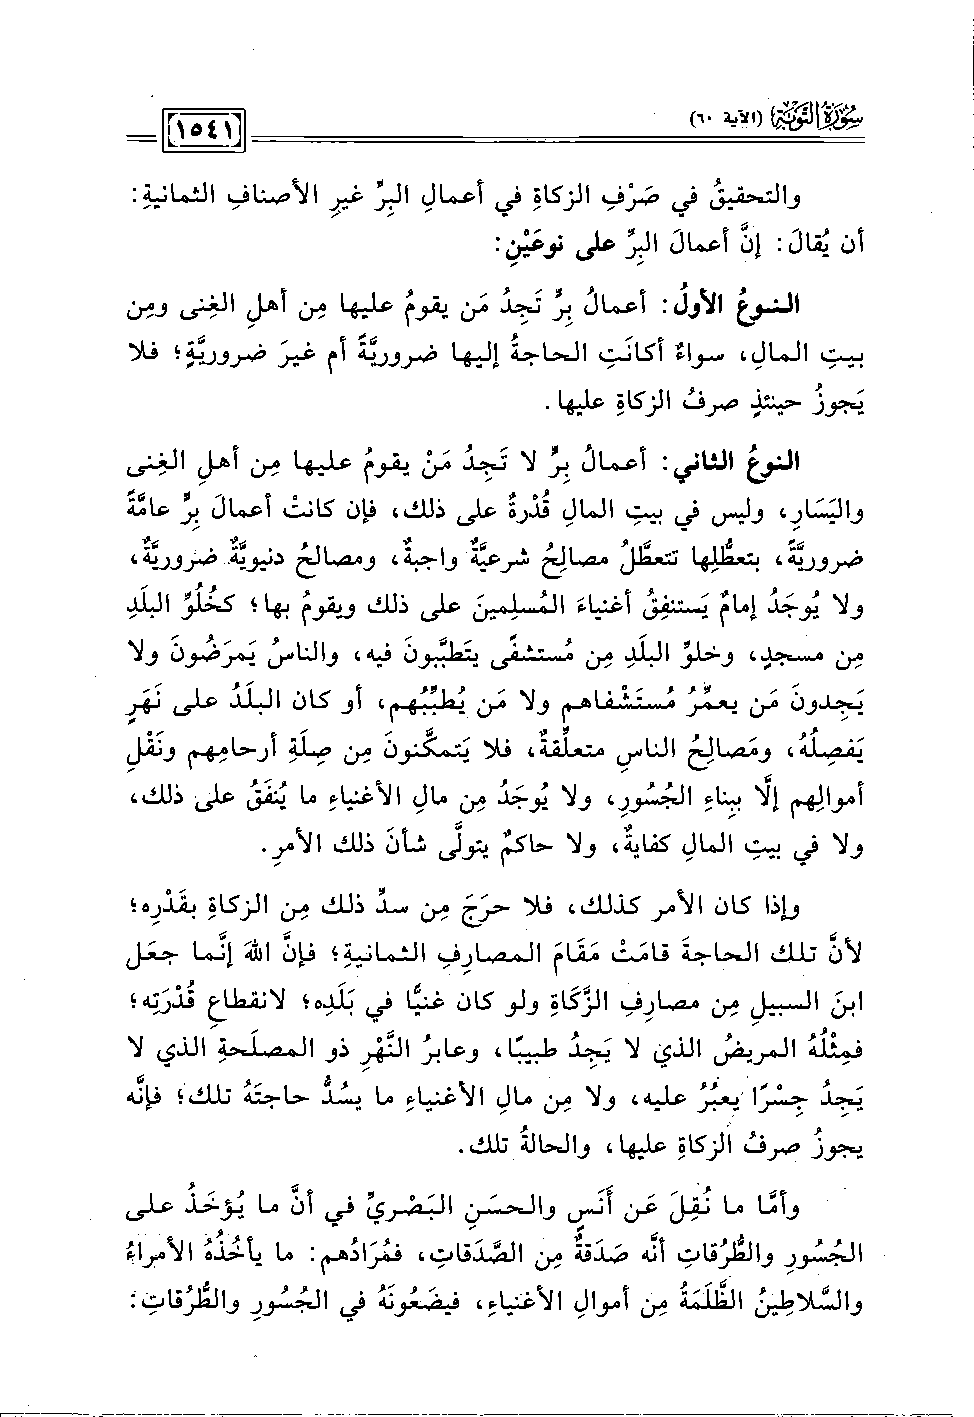 سُورَةُ التَّوْبَةِ (الآية ٦٠)
١٥٤١
والتحقيقُ في صَرْفِ الزكاةِ في أعمالِ البِرِّ غيرِ الأصنافِ الثمانيةِ:
أن يُقالَ: إنَّ أعمالَ البِرِّ على نوعَيْنِ:
النـوعُ الأولُ: أعمالُ بِرٍّ تَجِدُ مَن يقومُ عليها مِن أهلِ الغِنى ومِن
بيتِ المالِ، سواءٌ أكانَتِ الحاجةُ إليها ضروريَّةً أم غيرَ ضروريَّةٍ؛ فلا
يَجوزُ حينئذٍ صرفُ الزكاةِ عليها.
النوعُ الثاني: أعمالُ بِرٍّ لا تَجِدُ مَنْ يقومُ عليها مِن أهلِ الغِنى
واليَسَارِ، وليس في بيتِ المالِ قُدْرةٌ على ذلك، فإن كانتْ أعمالَ بِرٍّ عامَّةً
ضروريَّةً، بتعطُّلِها تتعطَّلُ مصالِحُ شرعيَّةٌ واجبةٌ، ومصالحُ دنيويَّةٌ ضروريَّةٌ،
ولا يُوجَدُ إمامٌ يَستنفِقُ أغنياءَ المُسلِمينَ على ذلك ويقومُ بها؛ كخُلُوِّ البلَدِ
مِن مسجدٍ، وخلوِّ البلَدِ مِن مُستشفًى يتَطبَّبونَ فيه، والناسُ يَمرَضُونَ ولا
يَجِدونَ مَن يعمِّرُ مُستَشْفاهم ولا مَن يُطبِّبُهم، أو كان البلَدُ على نَهَرٍ
يَفصِلُهُ، ومَصالِحُ الناسِ متعلِّقةٌ، فلا يَتمكَّنونَ مِن صِلَةِ أرحامِهم ونَقْلِ
أموالِهم إلَّا ببِناءِ الجُسُورِ، ولا يُوجَدُ مِن مالِ الأغنياءِ ما يُنفَقُ على ذلك،
ولا في بيتِ المالِ كفايةٌ، ولا حاكمٌ يتولَّى شأنَ ذلك الأمرِ.
وإذا كان الأمر كذلك، فلا حرَجَ مِن سدِّ ذلك مِن الزكاةِ بقَدْرِه؛
لأنَّ تلك الحاجةَ قامَتْ مَقَامَ المصارِفِ الثمانيةِ؛ فإنَّ اللهَ إنَّما جعَل
ابنَ السبيلِ مِن مصارِفِ الزَّكَاةِ ولو كان غنيًّا في بَلَدِه؛ لانقطاعِ قُدْرَتِه؛
فمِثْلُهُ المريضُ الذي لا يَجِدُ طبيبًا، وعابرُ النَّهْرِ ذو المصلَحةِ الذي لا
يَجِدُ جِسْرًا يعبُرُ عليه، ولا مِن مالِ الأغنياءِ ما يسُدُّ حاجتَهُ تلك؛ فإنَّه
يجوزُ صرفُ الزكاةِ عليها، والحالةُ تلك.
وأمَّا ما نُقِلَ عَن أَنَسٍ والحسَنِ البَصْريِّ في أنَّ ما يُؤخَذُ على
الجُسُورِ والطُّرُقاتِ أنَّه صَدَقةٌ مِن الصَّدَقاتِ، فمُرَادُهم: ما يأخُذُهُ الأمراءُ
والسَّلاطِينُ الظَّلَمَةُ مِن أموالِ الأغنياءِ، فيضَعُونَهُ في الجُسُورِ والطُّرُقاتِ: